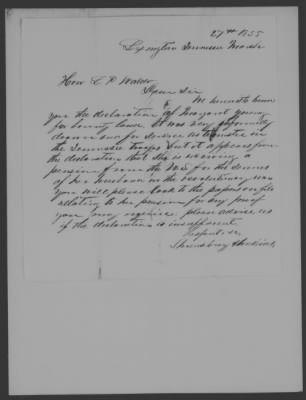 27th 1855
Lexington Tennessee March
Hon L P Waldo
Dear Sir
We herewith hand
you the declaration of Margaret Young
for bounty land. It was very
done over for service as
the Tennessee troops but it appears from
the declaration that she is receiving a
pension from the for the services
of her husband in the revolutionary war
you will please look to the papers on file
relating to her pension for any proof
you may require. please advise us
if the declaration is insufficient
Respectfully